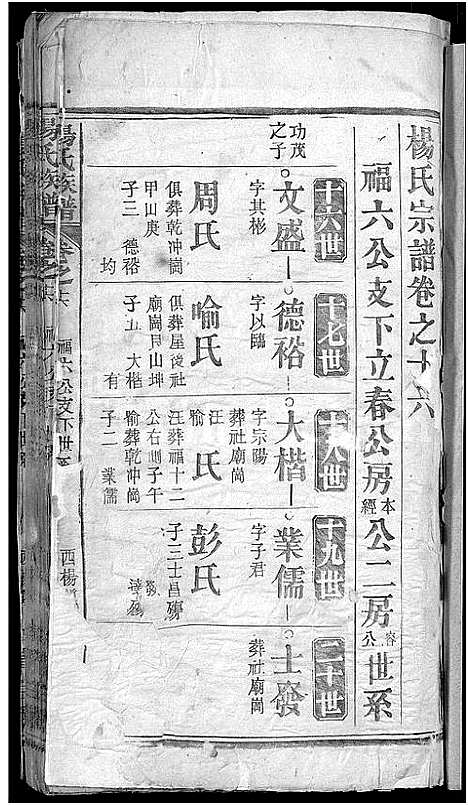 楊氏宗譜卷之十六
福六公支下立春公房本經公二房容公世系
十六世
十七世
十八世
十九世
二十世
功茂之子
文盛
字其彬
周氏
俱葬乾冲崗
甲山庚
子三 德裕
均
德裕
字以臨
喻氏
俱葬屋後社
廟崗艮山坤
子五 大楷
有
大楷
字宗陽
葬社廟崗
汪喻氏
汪葬福十二
公右側子午
喻葬乾冲崗
子二 業儒
業儒
字子君
彭氏
子三士昌殤
發
達殤
士發
葬社廟崗
楊氏族譜
卷之十六
福六公支下世系
西楊
楊氏族譜